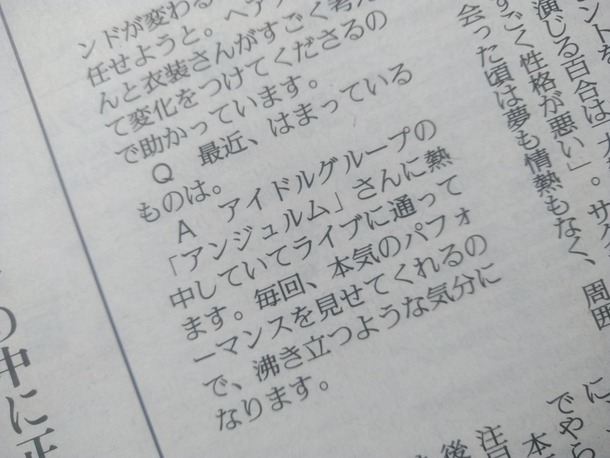 ンドが変わる
任せようと。ヘア
んと衣装さんがすごく考え
て変化をつけてくださるの
で助かっています。
Q 最近、はまっている
ものは。
A アイドルグループの
「アンジュルム」さんに熱
中していてライブに通って
ます。毎回、本気のパフォ
ーマンスを見せてくれるの
で、沸き立つような気分に
なります。
演じる百合は
すごく性格が悪い」。サク
会った頃は夢も情熱もなく、周囲
の中に正
に
でやら
本
注目
後